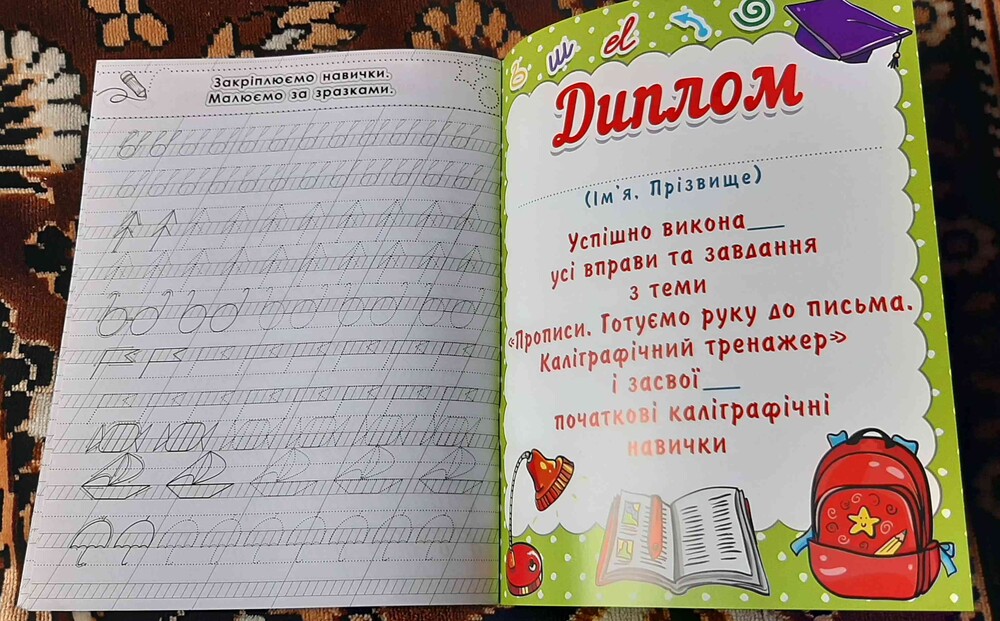 Закріплюємо навички.
Малюємо за зразками.
Диплом
(Ім'я, Прізвище)
Успішно викона__
усі вправи та завдання
з теми
«Прописи. Готуємо руку до письма.
Каліграфічний тренажер»
і засвої__
початкові каліграфічні
навички